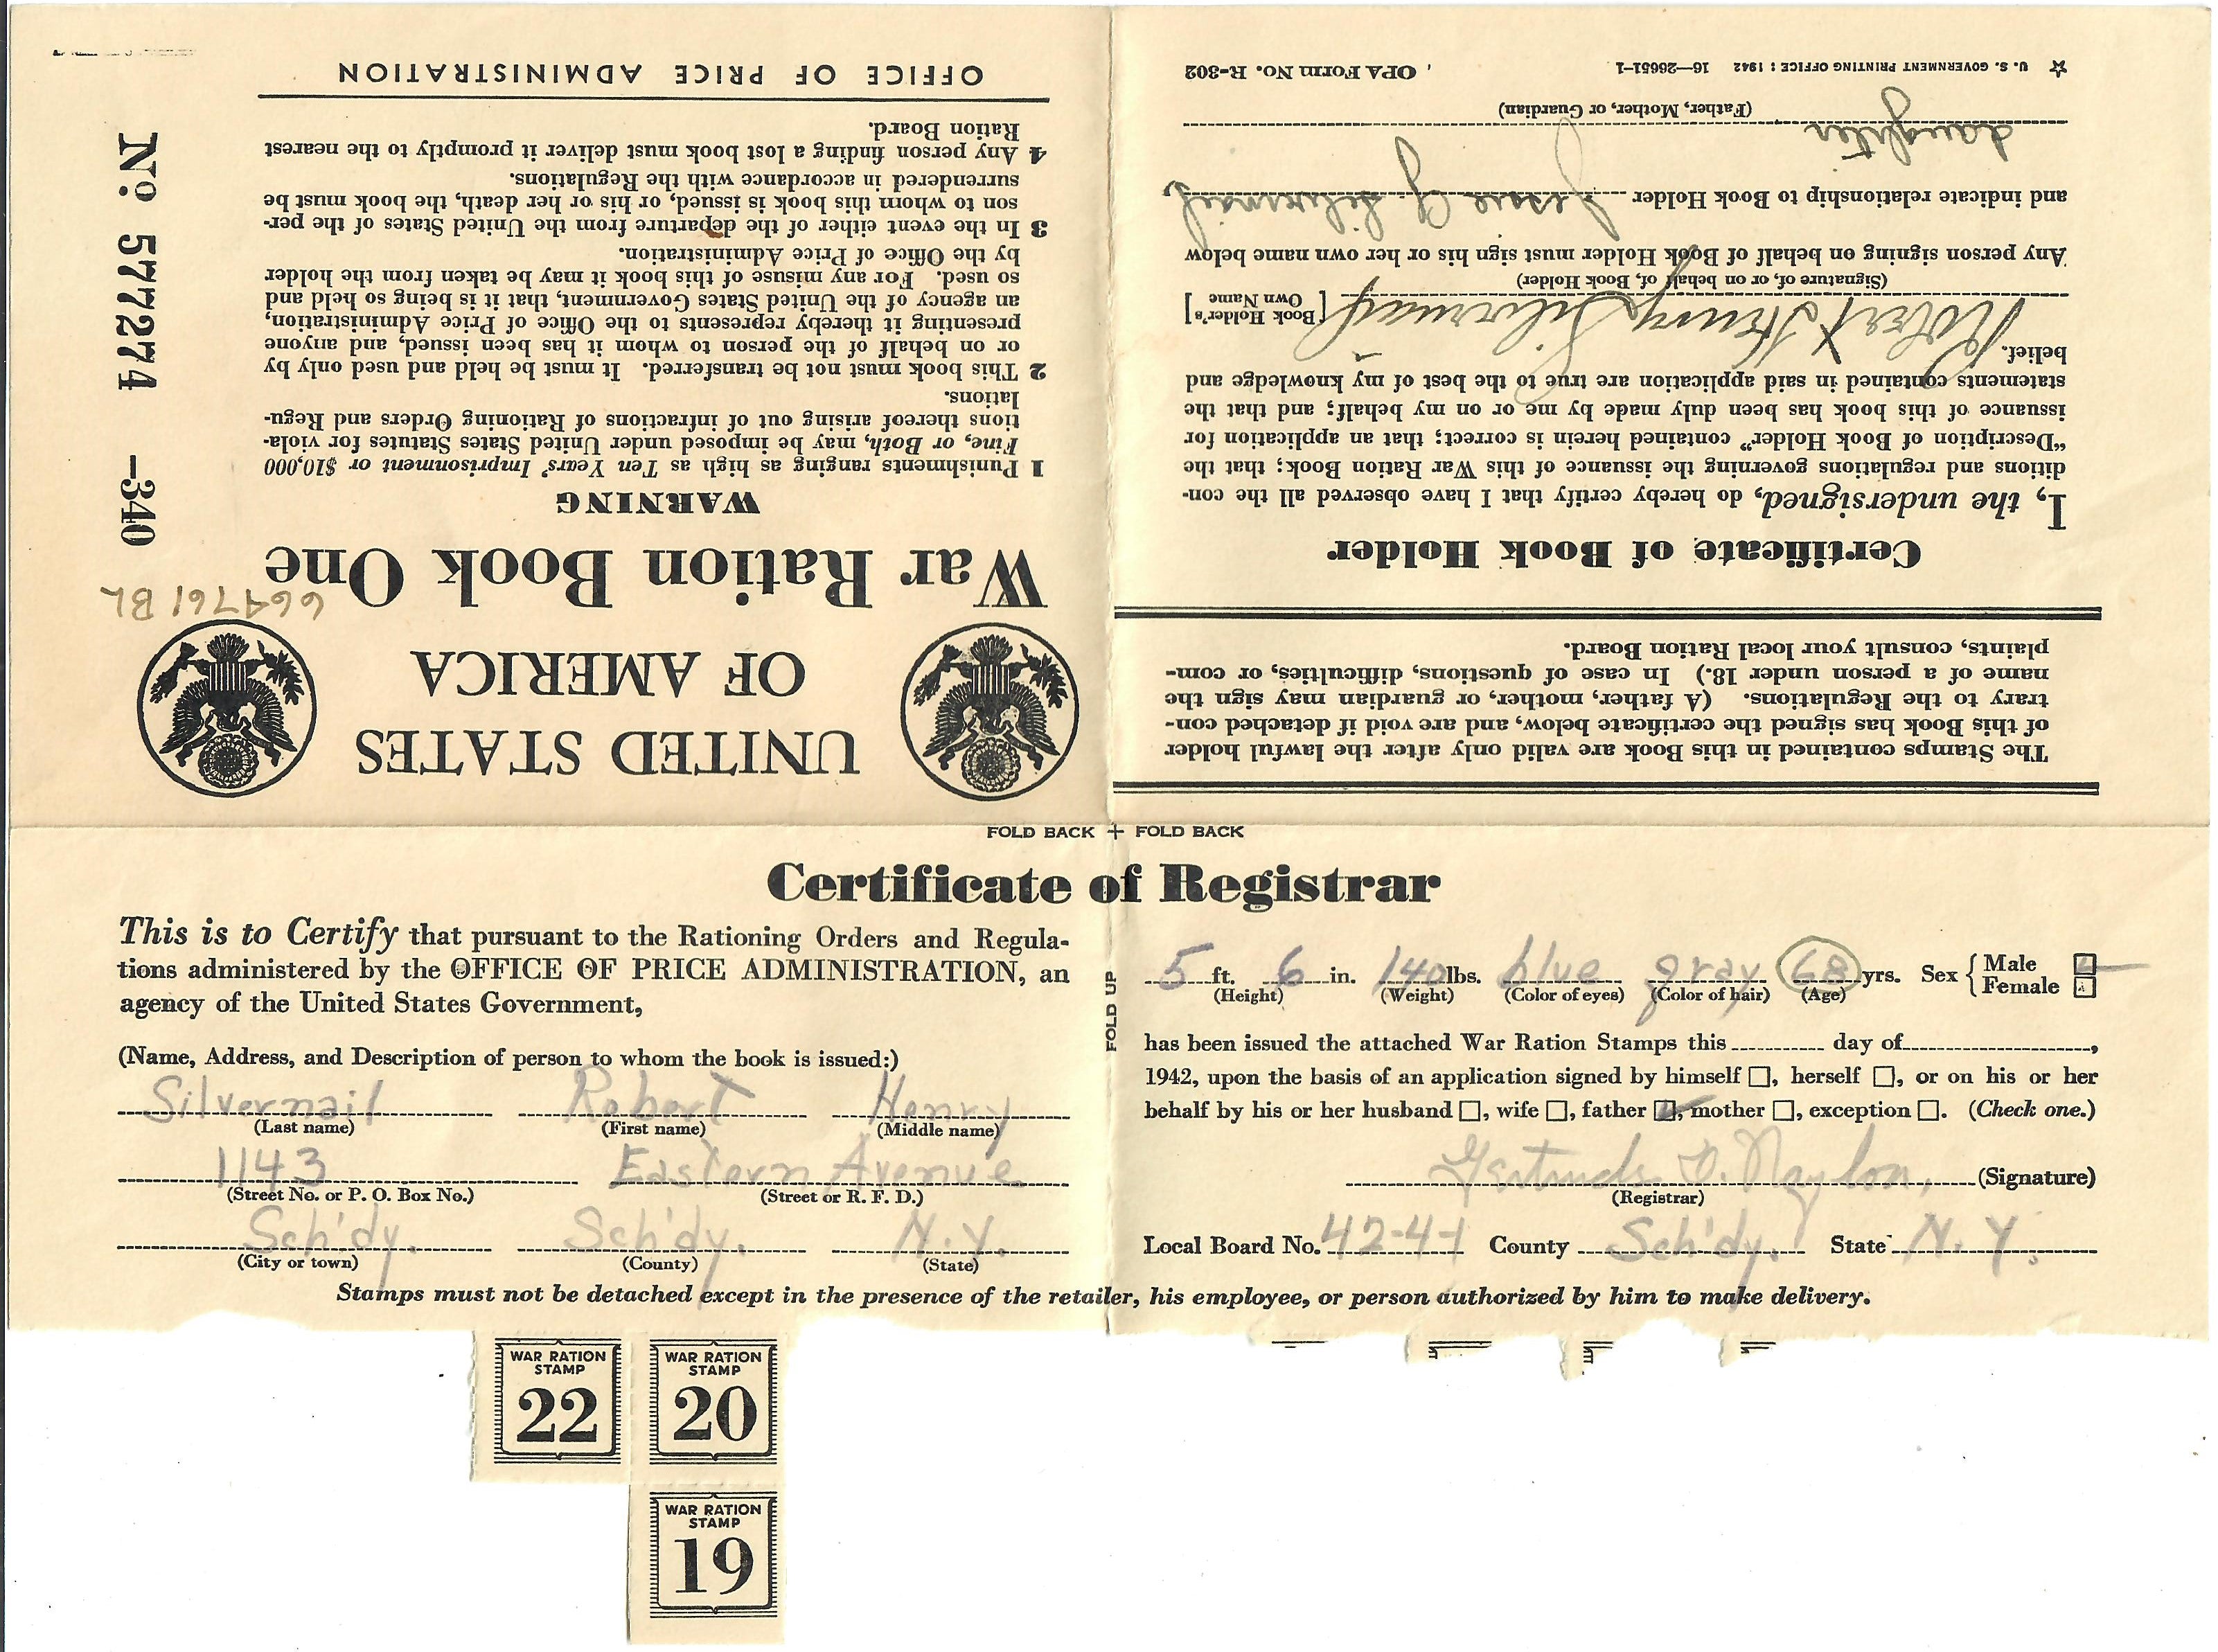 UNITED STATES
OF AMERICA
War Ration Book One
WARNING
1 Punishments ranging as high as Ten Years' Imprisonment or $10,000
Fine, or Both, may be imposed under United States Statutes for viola-
tions thereof arising out of infractions of Rationing Orders and Regu-
lations.
2 This book must not be transferred. It must be held and used only by
or on behalf of the person to whom it has been issued, and anyone
presenting it thereby represents to the Office of Price Administration,
an agency of the United States Government, that it is being so held and
so used. For any misuse of this book it may be taken from the holder
by the Office of Price Administration.
3 In the event either of the departure from the United States of the per-
son to whom this book is issued, or his or her death, the book must be
surrendered in accordance with the Regulations.
4 Any person finding a lost book must deliver it promptly to the nearest
Ration Board.
OFFICE OF PRICE ADMINISTRATION
664761 BL
Nº 577274 -340
The Stamps contained in this Book are valid only after the lawful holder
of this Book has signed the certificate below, and are void if detached con-
trary to the Regulations. (A father, mother, or guardian may sign the
name of a person under 18.) In case of questions, difficulties, or com-
plaints, consult your local Ration Board.
Certificate of Book Holder
I, the undersigned, do hereby certify that I have observed all the con-
ditions and regulations governing the issuance of this War Ration Book; that the
"Description of Book Holder" contained herein is correct; that an application for
issuance of this book has been duly made by me or on my behalf; and that the
statements contained in said application are true to the best of my knowledge and
belief.
Robert Henry Silvernail [Book Holder's Own Name]
(Signature of, or on behalf of, Book Holder)
Any person signing on behalf of Book Holder must sign his or her own name below
and indicate relationship to Book Holder Jessie G. Silvernail
daughter
(Father, Mother, or Guardian)
☆ U. S. GOVERNMENT PRINTING OFFICE : 1942 16—26651-1 OPA Form No. R-302
FOLD BACK + FOLD BACK
Certificate of Registrar
This is to Certify that pursuant to the Rationing Orders and Regula-
tions administered by the OFFICE OF PRICE ADMINISTRATION, an
agency of the United States Government,
(Name, Address, and Description of person to whom the book is issued:)
Silvernail Robert Henry
(Last name) (First name) (Middle name)
1143 Eastern Avenue
(Street No. or P. O. Box No.) (Street or R. F. D.)
Sch'dy. Sch'dy. N.Y.
(City or town) (County) (State)
FOLD UP
5 ft. 6 in. 140 lbs. blue gray 68 yrs. Sex { Male
Female
(Height) (Weight) (Color of eyes) (Color of hair) (Age)
has been issued the attached War Ration Stamps this day of ,
1942, upon the basis of an application signed by himself □, herself □, or on his or her
behalf by his or her husband □, wife □, father ☑, mother □, exception □. (Check one.)
Gertrude D. Naylon, (Signature)
(Registrar)
Local Board No. 42-4-1 County Sch'dy. State N.Y.
Stamps must not be detached except in the presence of the retailer, his employee, or person authorized by him to make delivery.
WAR RATION
STAMP
22
WAR RATION
STAMP
20
WAR RATION
STAMP
19